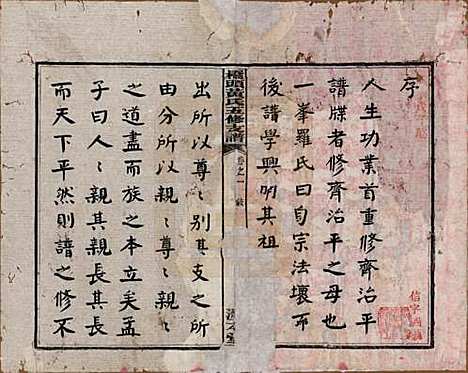 序
人生功業首重修齊治平
譜牒者修齊治平之母也
一峯羅氏曰自宗法壞而
後譜學興明其祖
氏五修支譜
卷之一
出所以尊〻別其支之所
由分所以親〻尊〻親〻
之道盡而族之本立矣孟
子曰人〻親其親長其長
而天下平然則譜之修不